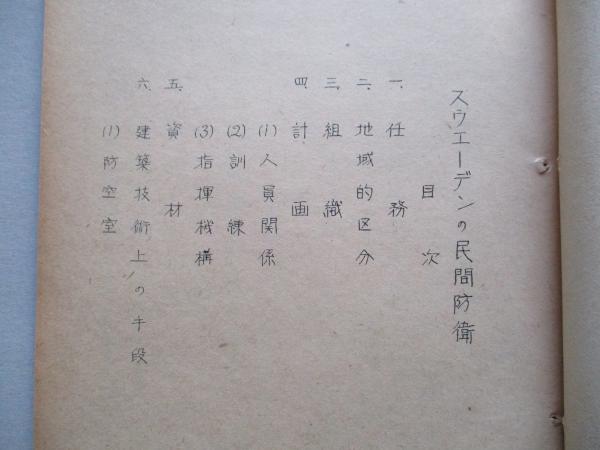 スウエーデンの民間防衛
目次
一、任務
二、地域的区分
三、組織
四、計画
(1)人員関係
(2)訓練
(3)指揮機構
五、資材
六、建築技術上の手段
(1)防空室